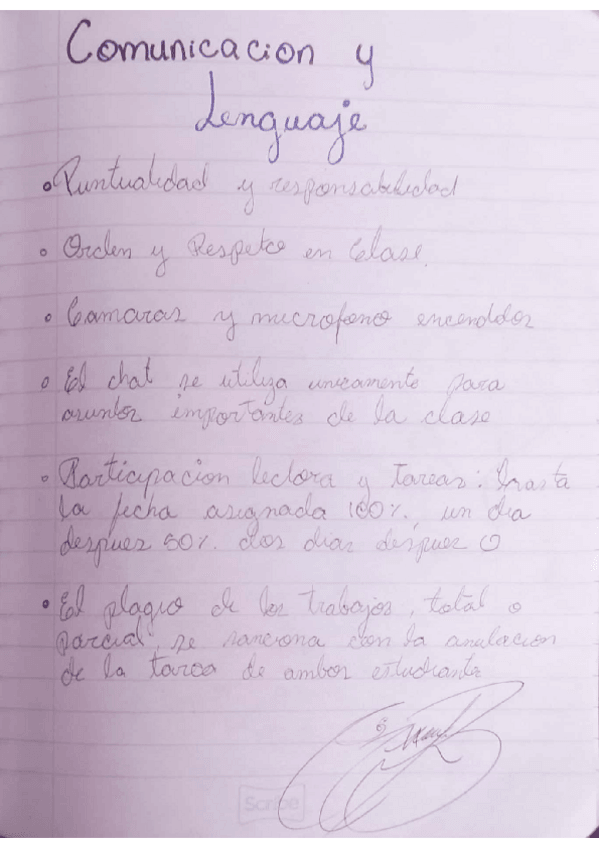 Comunicacion y
Lenguaje
• Puntualidad y responsabilidad
• Orden y Respeto en Clase.
• Camaras y microfono encendidos
• El chat se utiliza unicamente para
asuntos importantes de la clase
• Participacion lectora y tareas: hasta
la fecha asignada 100%, un dia
despues 50%. dos dias despues 0
• El plagio de los trabajos, total o
parcial, se sanciona con la anulacion
de la tarea de ambos estudiantes
Scribe